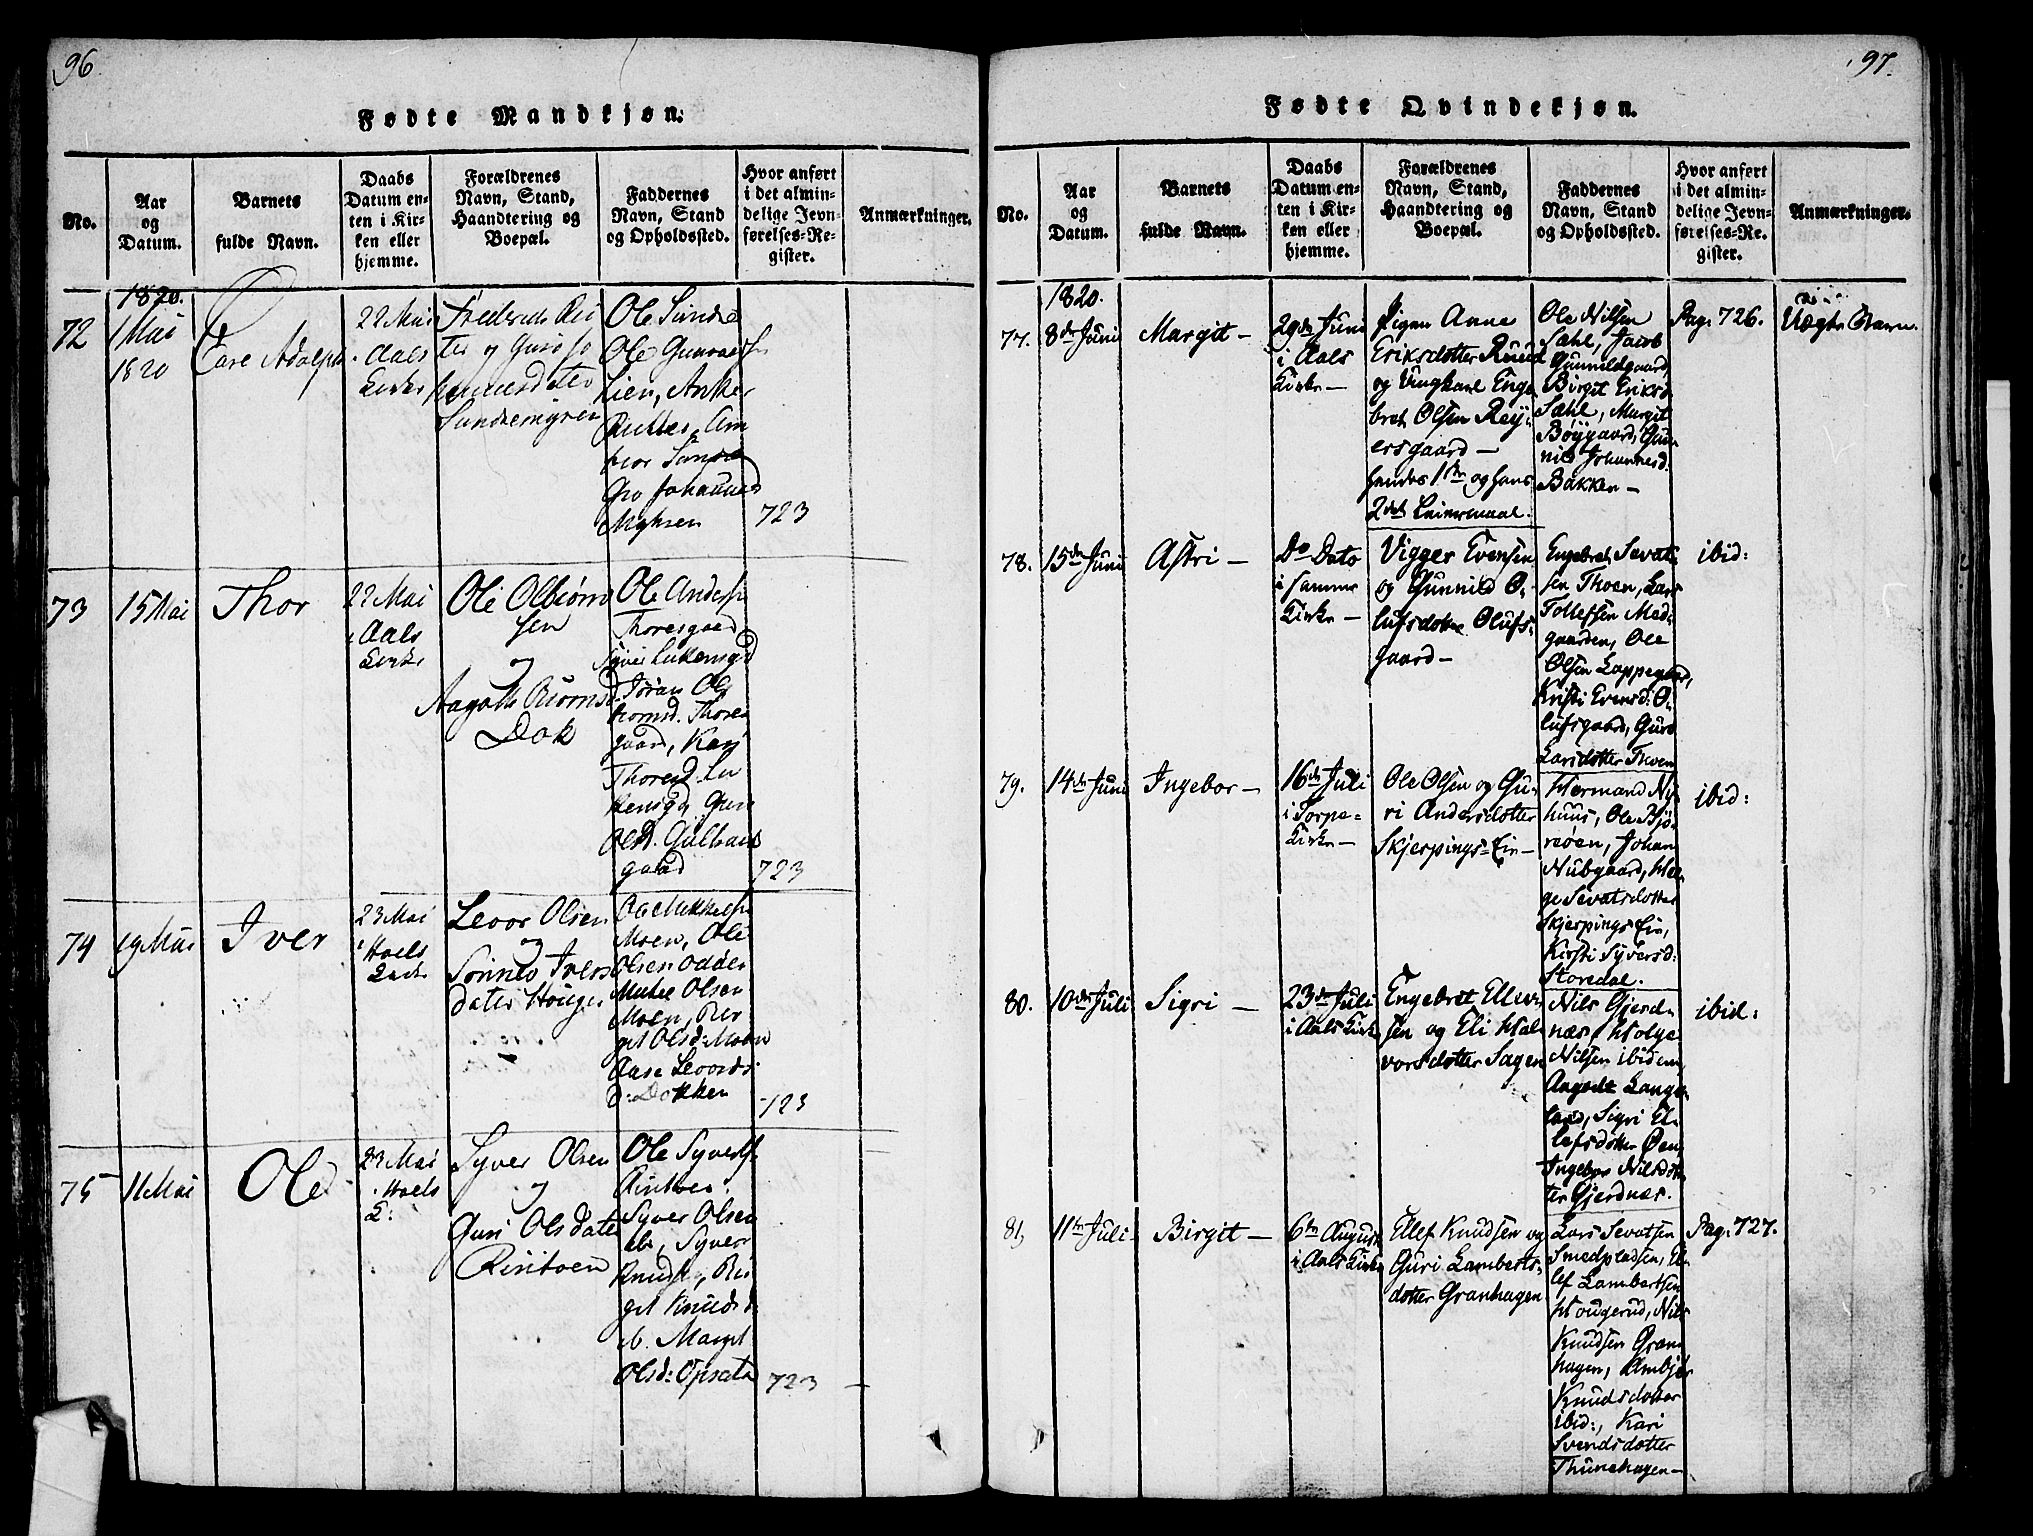 96.
Fødte Mandkjøn.
No.
Aar
og
Datum.
Barnets
fulde Navn.
Daabs
Datum en-
ten i Kir-
ken eller
hjemme.
Forældrenes
Navn, Stand,
Haandtering og
Boepæl.
Faddernes
Navn, Stand
og Opholdssted.
Hvor anført
i det almin-
delige Jevn-
førelses-Re-
gister.
Anmærkninger.
1820.
72
1 Mai
1820
Care Adolph
22 Mai
Aals
Kirke
Frederik Rit
ter og Guro Jo
hannesdater
Sundremyren
Ole Sundre
Ole Gunvaersen
Lien, Anker
Ritter, Am
Sundre
Gro Johannesd
Myhren
723
73
15 Mai
Thor
22 Mai
i Aals
Kirke
Ole Olbiörn
sen
og
Aagoth Biornsd.
Dok
Ole Anders
Thoresgaard
Syver
Jöran Ol
biornsd. Thores
gaard, Kari
Thoresd.
Guri
Olsd.
gaard
723
74
19 Mai
Iver
23 Mai
i Hoels
Kirke
Levor Olsen
og
Sönnev Ivers
dater Houge
Ole Mikkels
Moen, Ole
Olsen Odden
Mikel Olsen
Moen, Bir
git Olsd: Moen
Aase Levords
d: Dokken
723
75
11 Mai
Ole
23 Mai
i Hoels
K:
Syver Olsen
og
Guri Olsdater
Ole Syvers
Syver Olsen
ib, Syver
Knuds, Bir
git Knudsd
ib. Margit
Olsd: Opsata
723 —
97.
Fødte Qvindekjøn.
No.
Aar
og
Datum.
Barnets
fulde Navn.
Daabs
Datum en-
ten i Kir-
ken eller
hjemme.
Forældrenes
Navn, Stand,
Haandtering og
Boepæl.
Faddernes
Navn, Stand
og Opholdssted.
Hvor anført
i det almin-
delige Jevn-
førelses-Re-
gister.
Anmærkninger.
1820.
77.
8de Juni
Margit —
29de Juni
i Aals
Kirke —
Pigen Anne
Eriksdotter Ruud
og Ungkarl Enge
bret Olsen Rey-
ersgaard —
hendes 1ste og hans
2det Leiermaal.
Ole Nilsen
Sahl, Jacob
Gunnildgaard,
Birgit Eriksd
Sahl, Margit
Bøygaard, Gun
nild Johannesd.
Bakken —
Pag. 726.
Uægte Barn.
78.
15de Juni
Astri —
Do Dato
i samme
Kirke —
Vigger Evensen
og Gunnild O-
lufsdotter Olufs-
gaard —
Engebret Sevat-
sen Thoen, Lars
Tollefsen Med-
gaarden, Ole
Olsen Loppegard,
Kristi Evensd: O-
lufsgaard, Guro
Larsdotter Thoen
ibid:
79.
14de Juni
Ingebor —
16de Juli
i Torpe-
Kirke —
Ole Olsen og Gu-
ri Andersdotter
Skjerpings-Eie —
Hermand Ny-
huus, Ole Bjö-
reöen, Johan
Nubgaard, Hel-
ge Sevatsdotter
Skjerpings Eie,
Kirsti Syversd:
Storedal.
ibid:
80.
10de Juli
Sigri —
23de Juli
i Aals Kirke
Engebret Ellev-
sen og Eli Hal-
vorsdotter Sagen
Nils Gjerd-
næs, Holge
Nilsen ibidem,
Angede Lange
land, Sigri El-
lefsdotter Øen
Ingebor Nilsdot-
ter Gjerdnæs.
ibid:
81,
11te Juli
Birgit —
6te August
i Aals Kirke
Ellef Knudsen og
Guri Lamberts-
dotter Granhagen
Lars Sevatsen
Smedpladsen, El-
lef Lambertsen
Hougerud, Nils
Knudsen Gran
hagen, Ambjör
Knudsdotter
ibid:, Kari
Svendsdotter
Thunehagen —
Pag. 727.